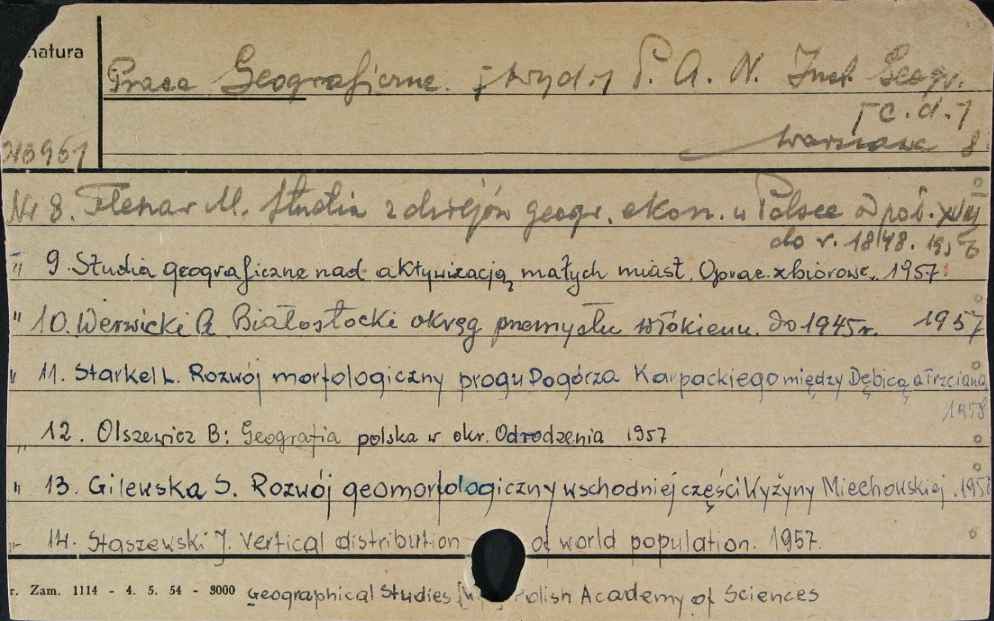 natura
Prace Geograficzne. [wyd.] P. A. N. Inst. Geogr.
[c. d.]
Warszawa 8
Nr 8. Flenar M. Studia z dziejów geogr. ekon. w Polsce
do r. 1848. 1956
" 9. Studia geograficzne nad aktywizacją małych miast. Oprac. zbiorowe. 1957
" 10. Werwicki A. Białostocki okręg przemysłu włókienn. do 1945 r. 1957
" 11. Starkel L. Rozwój morfologiczny progu Pogórza Karpackiego między Dębicą a Trzcianą
1958
" 12. Olszewicz B: Geografia polska w okr. Odrodzenia 1957
" 13. Gilewska S. Rozwój geomorfologiczny wschodniej części Wyżyny Miechowskiej. 1958
" 14. Staszewski J. Vertical distribution of world population. 1957.
r. Zam. 1114 - 4. 5. 54 - 3000 Geographical Studies Polish Academy of Sciences